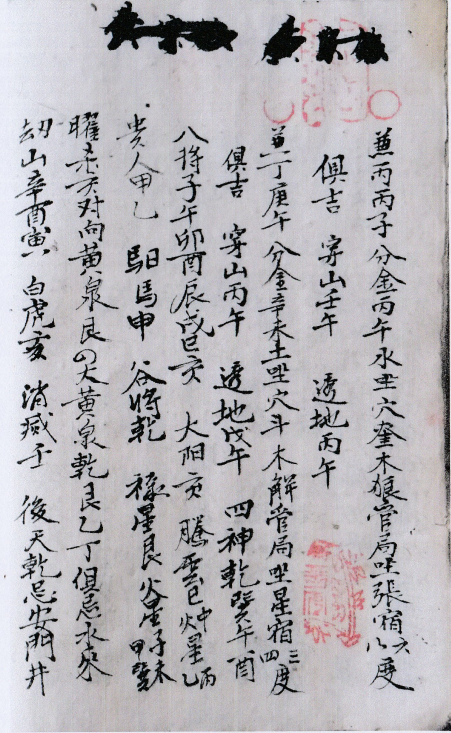 兼丙丙子分金丙午水坐穴奎木狼管局坐張宿六八度
俱吉 穿山壬午 透地丙午
兼丁庚午分金辛未土坐穴斗木解管局坐星宿三四度
俱吉 穿山丙午 透地戊午 四神乾巽午酉
八將子午卯酉辰戌巳亥 太阳亥 騰雲巳 星乙丙
贵人甲乙 馹馬申 谷將乾 禄星艮 火星子未甲
曜杀 对向黃泉艮 大黃泉乾艮乙丁俱忌水來
刼山辛酉寅 白虎亥 消滅壬 後天乾忌安門井